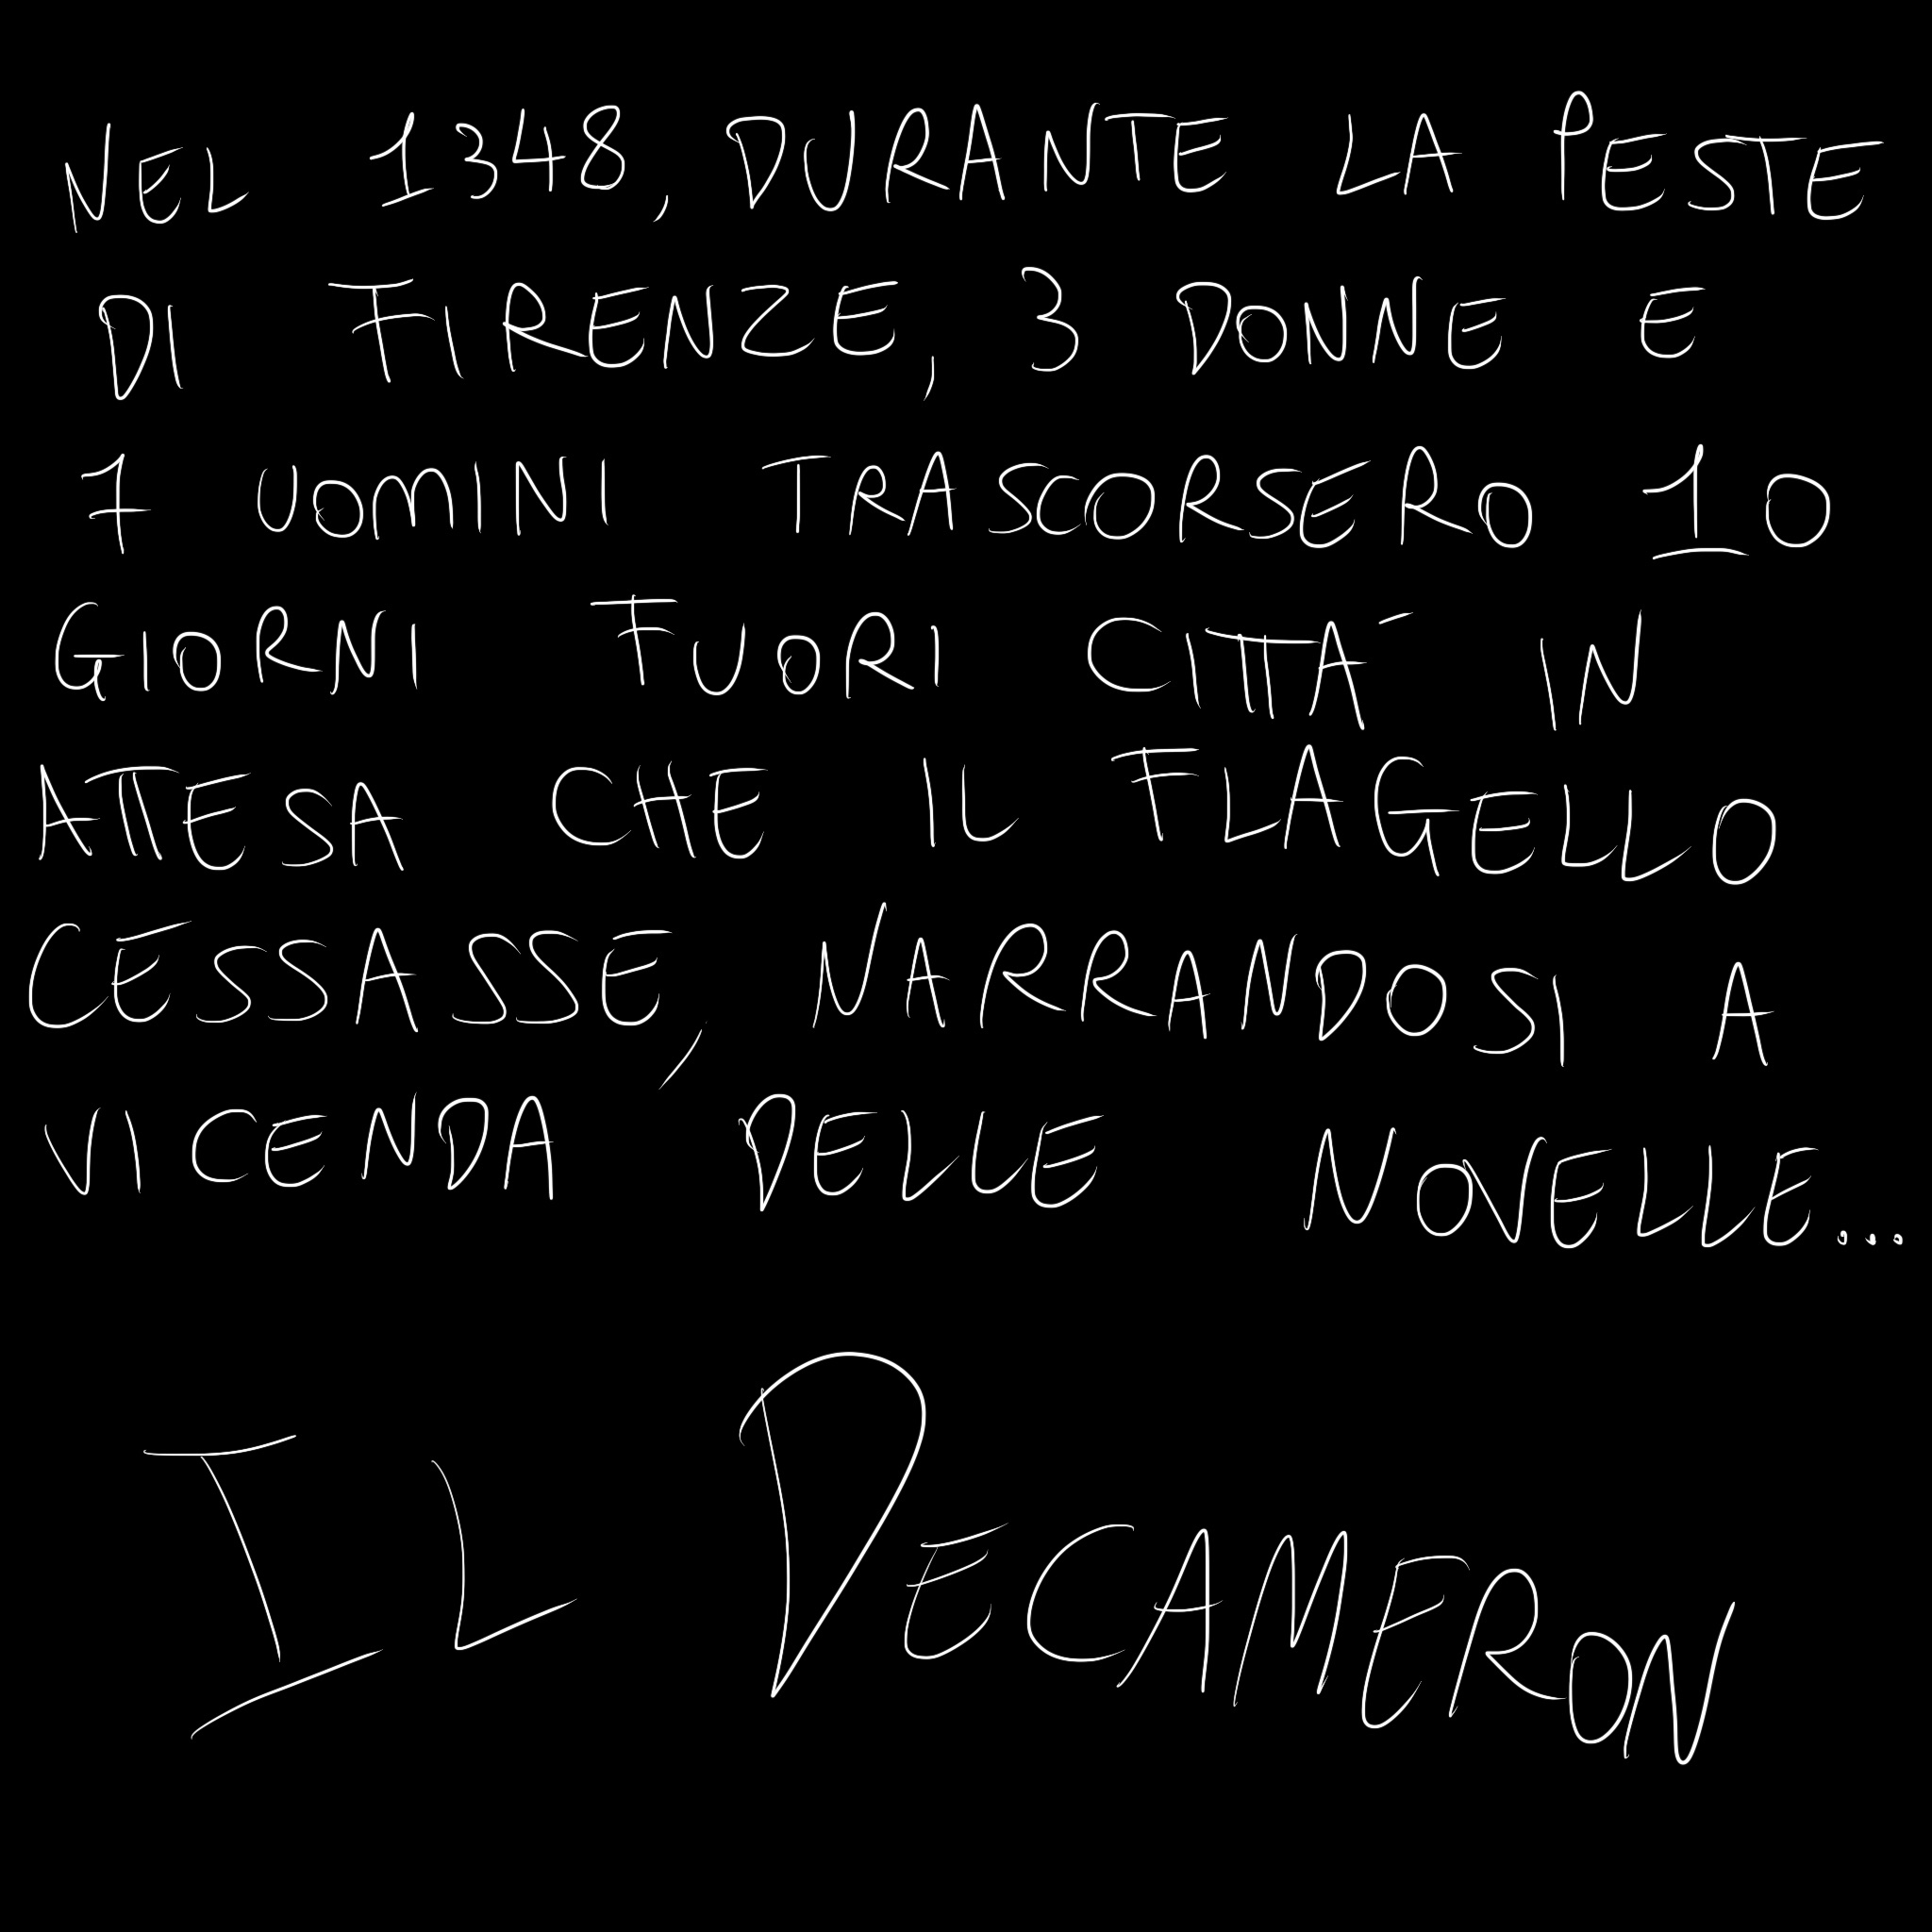 NEL 1348, DURANTE LA PESTE
DI FIRENZE, 3 DONNE E
7 UOMINI TRASCORSERO 10
GIORNI FUORI CITTA' IN
ATTESA CHE IL FLAGELLO
CESSASSE, NARRANDOSI A
VICENDA DELLE NOVELLE...
IL DECAMERON